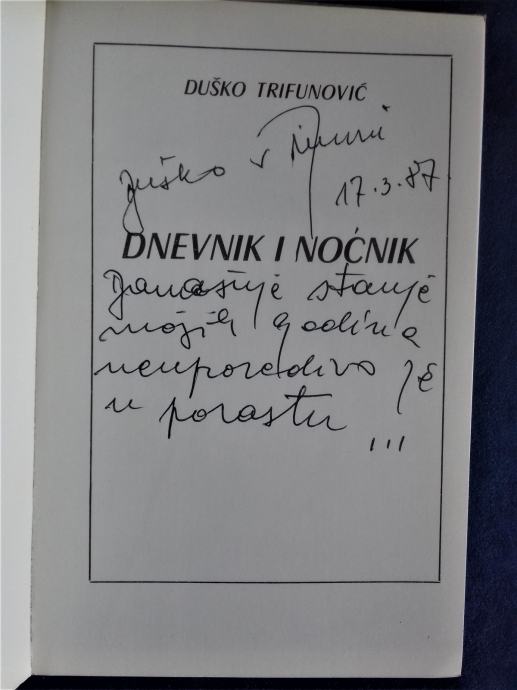 DUŠKO TRIFUNOVIĆ
Duško
17.3.87
DNEVNIK I NOĆNIK
Današnje stanje
mojih godina
neuporedivo je
u porastu ...